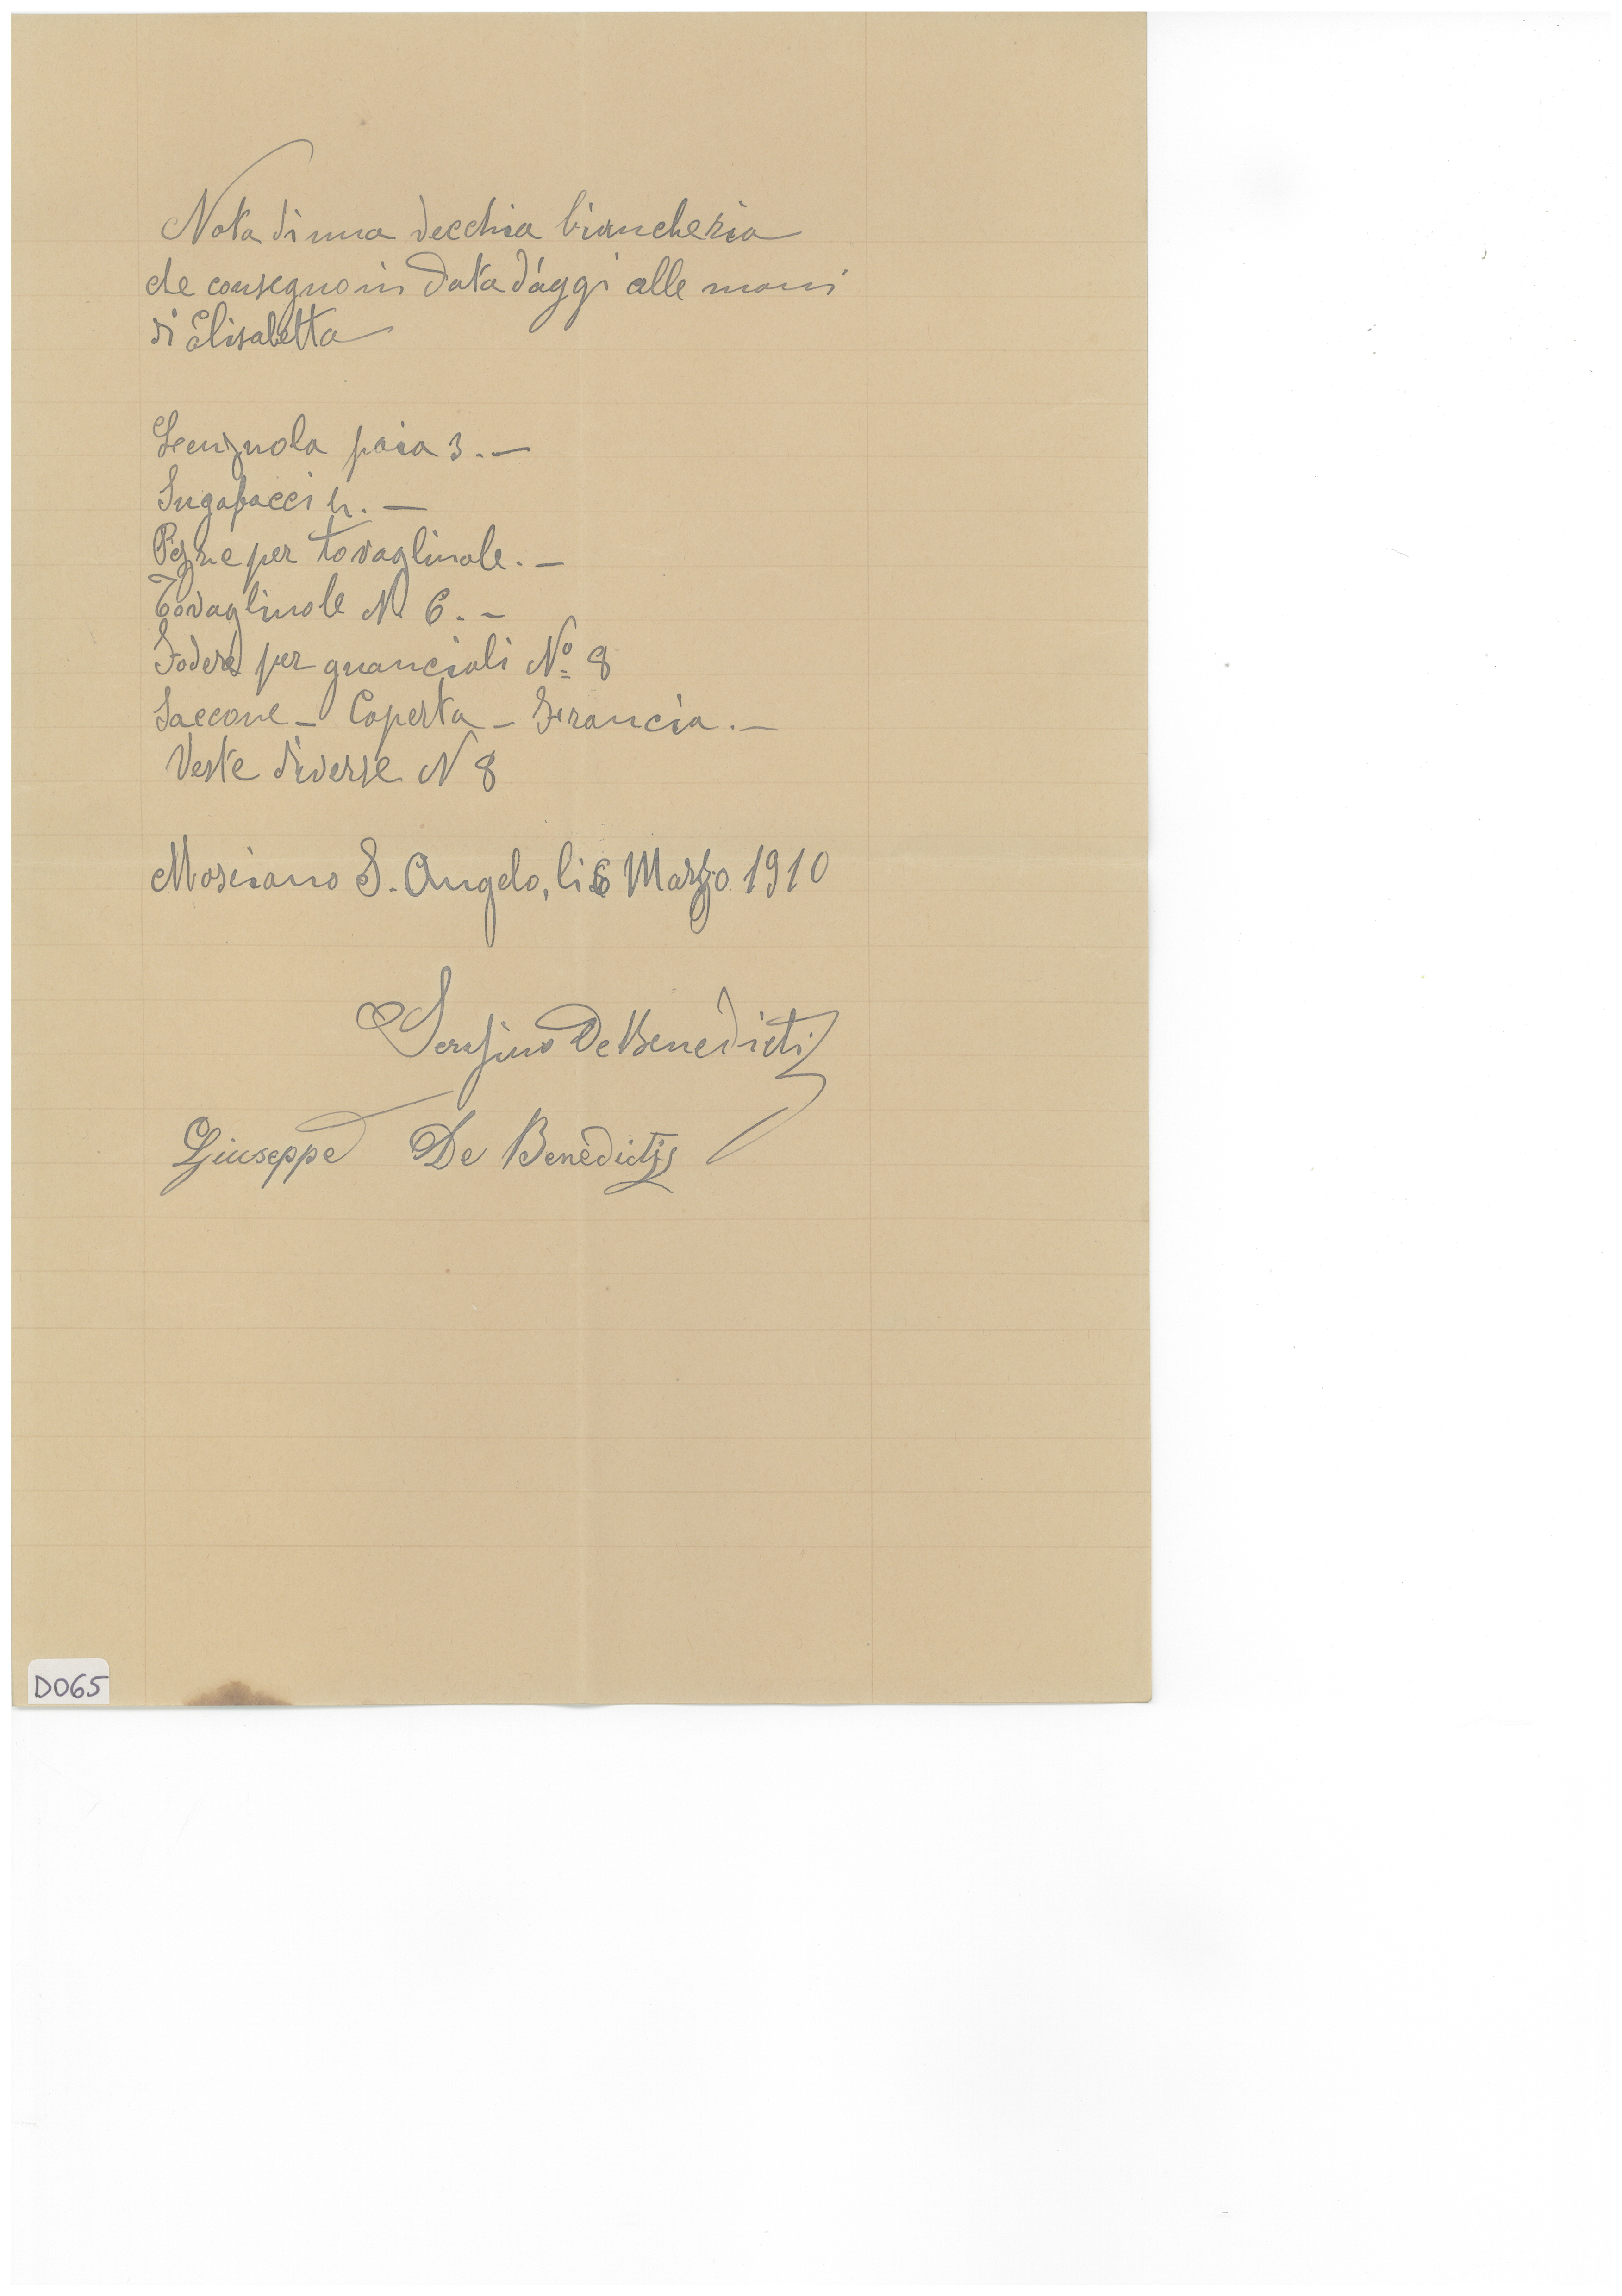 Nota di una vecchia biancheria
che consegno in data d'oggi alle mani
di Elisabetta
Lenzuola paia 3. —
Sugafacci 4. —
Pezze per tovagliuole. —
Tovagliuole N. 6. —
Fodere per guanciali Nº 8
Saccone — Coperta — Francia. —
Veste diverse N 8
Mosciano S. Angelo, li 6 Marzo 1910
Serafino De Benedictis
Giuseppe De Benedictis
D065